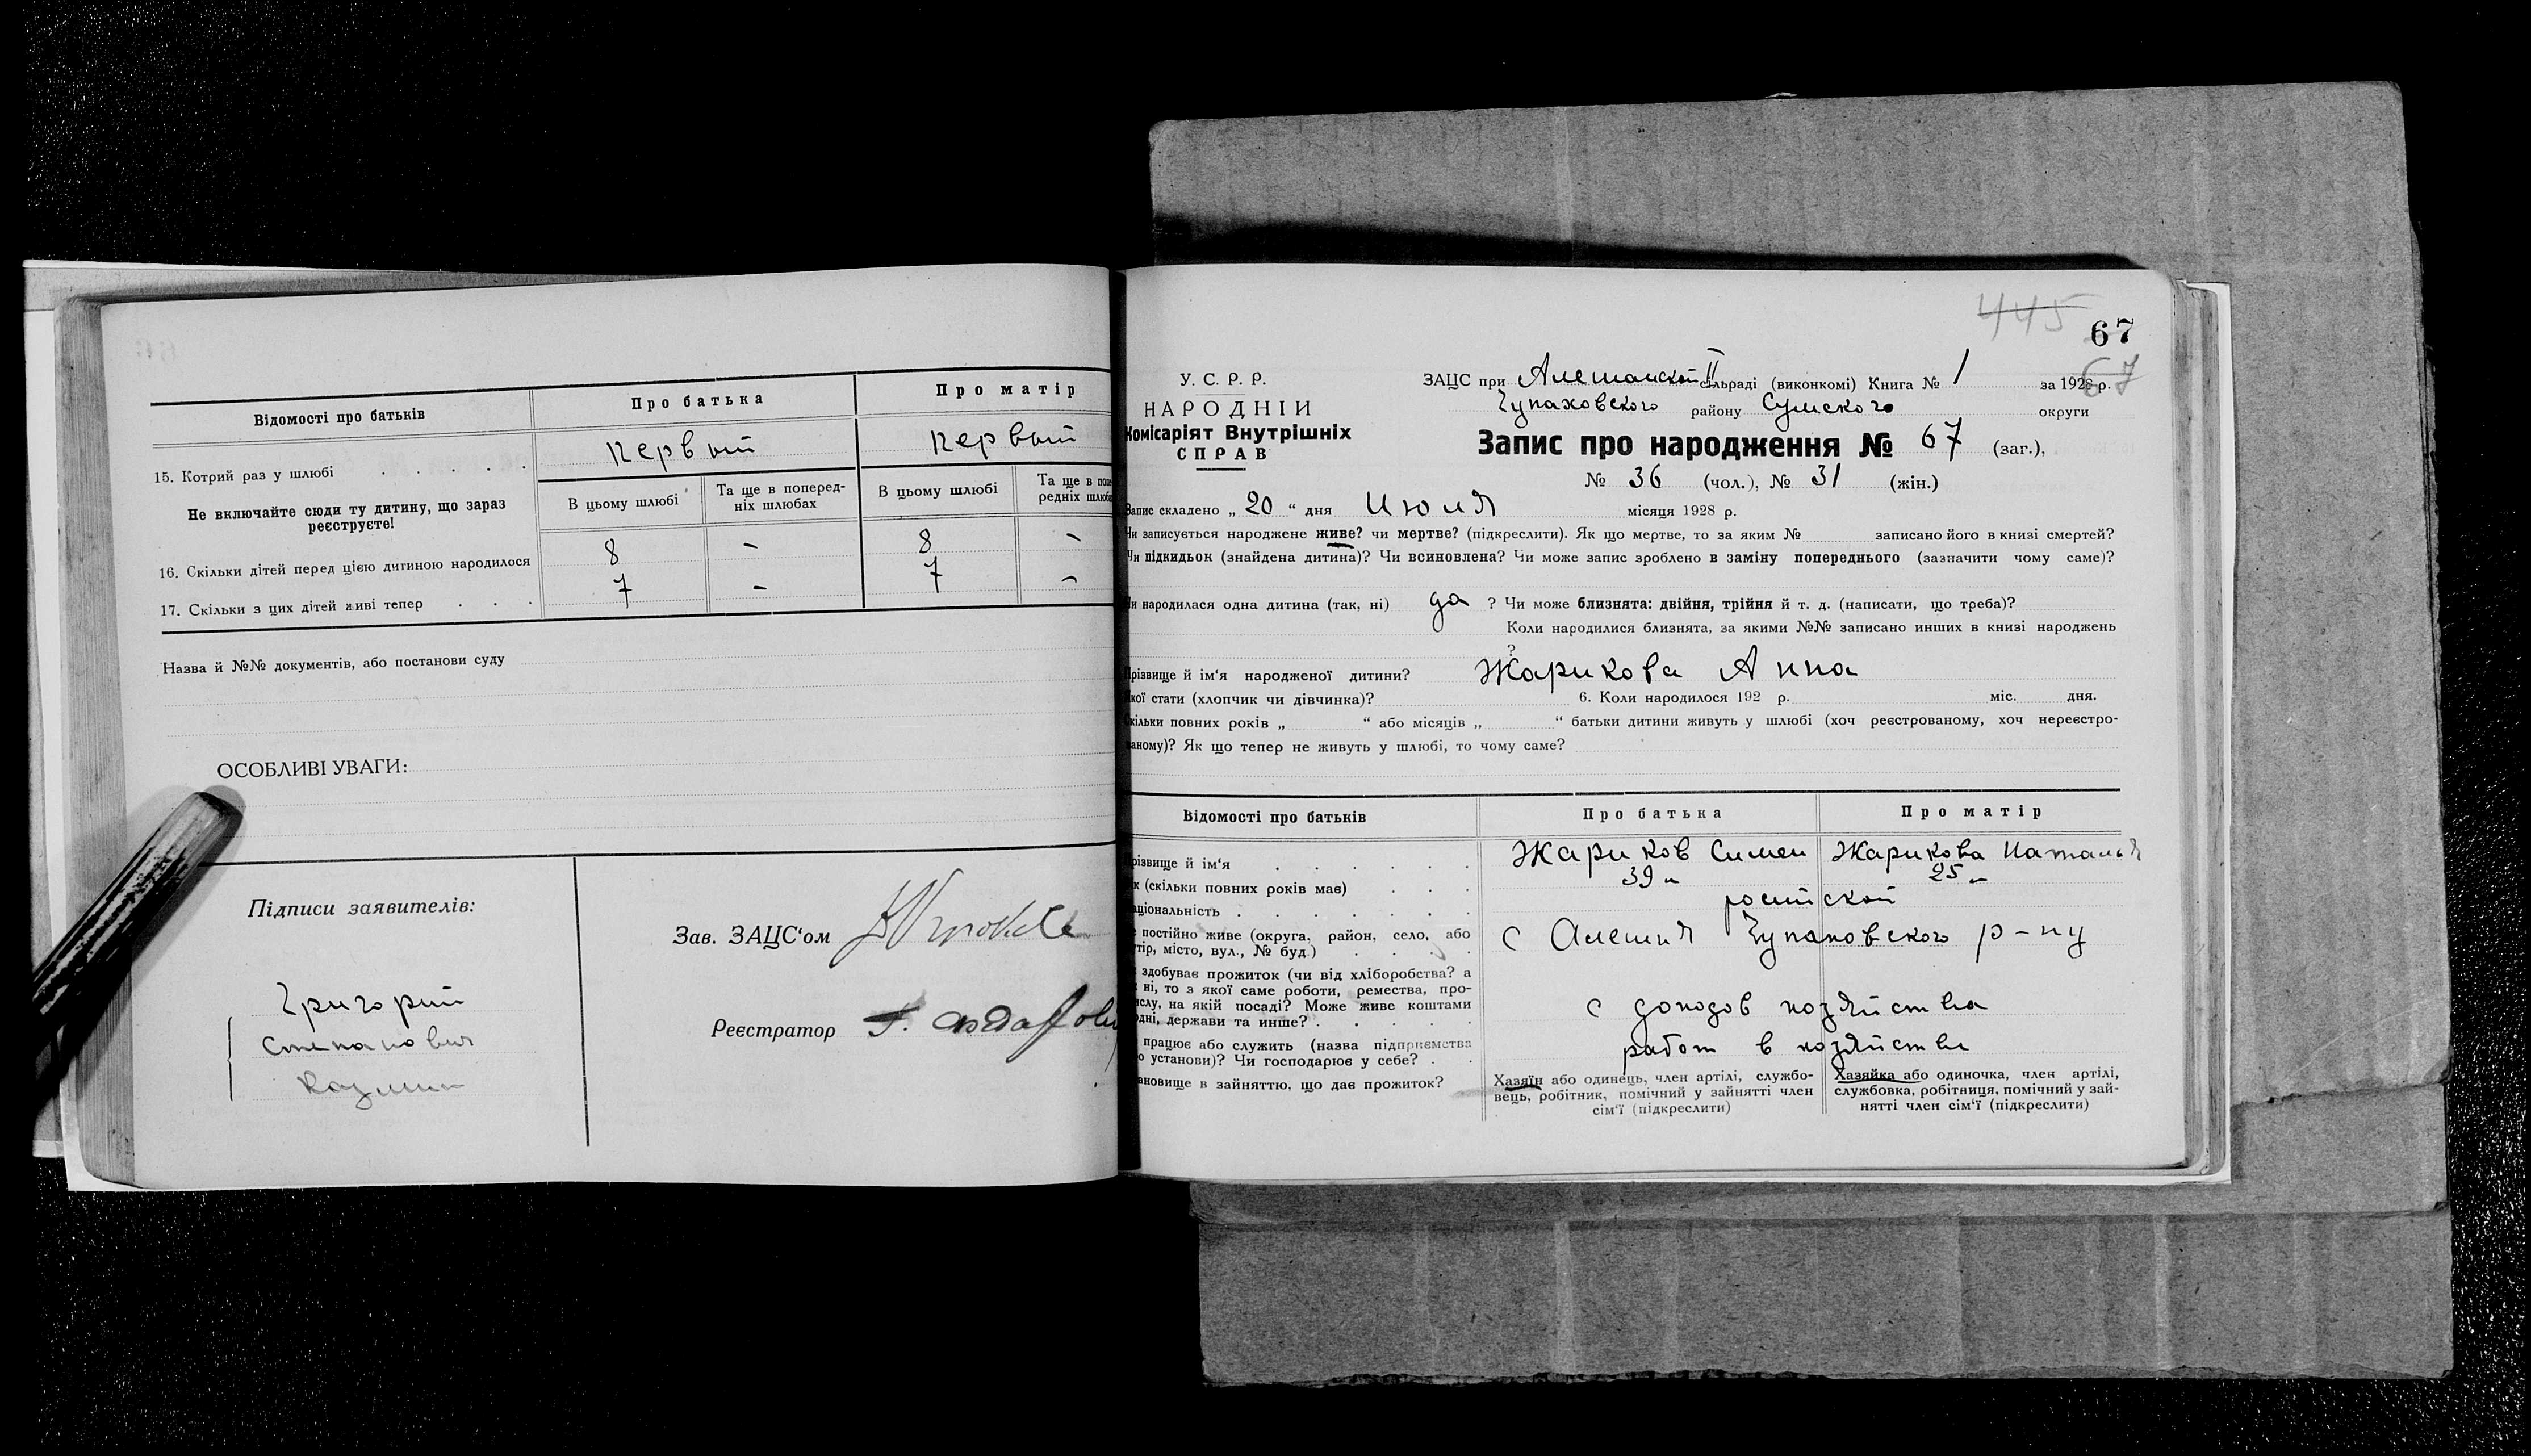 Відомості про батьків
Про батька
Про матір
15. Котрий раз у шлюбі . . . . .
первый
первый
Не включайте сюди ту дитину, що зараз
реєструєте!
В цьому шлюбі
Та ще в поперед-
ніх шлюбах
В цьому шлюбі
Та ще в попе
редніх шлюба
16. Скільки дітей перед цією дитиною народилося
8 - 8 -
17. Скільки з цих дітей живі тепер . . .
7 - 7 -
Назва й №№ документів, або постанови суду
ОСОБЛИВІ УВАГИ:
Підписи заявителів:
Григорий
Степанович
Зав. ЗАЦС'ом
Реєстратор
445
67
67
У. С. Р. Р.
НАРОДНІЙ
Комісаріят Внутрішніх
СПРАВ
ЗАЦС при Алешанской II сільраді (виконкомі) Книга № 1 за 1928 р.
Чупаховского району Сумского округи
Запис про народження № 67 (заг.),
№ 36 (чол.), № 31 (жін.)
Запис складено „ 20 “ дня Июля місяця 1928 р.
Чи записується народжене живе? чи мертве? (підкреслити). Як що мертве, то за яким № записано його в книзі смертей?
Чи підкидьок (знайдена дитина)? Чи всиновлена? Чи може запис зроблено в заміну попереднього (зазначити чому саме)?
и народилася одна дитина (так, ні) да ? Чи може близнята: двійня, трійня й т. д. (написати, що треба)?
Коли народилися близнята, за якими №№ записано инших в книзі народжень
?
різвище й ім'я народженої дитини? Жарикова Анна
кої стати (хлопчик чи дівчинка)? 6. Коли народилося 192 р. міс. дня.
кільки повних років „ “ або місяців „ “ батьки дитини живуть у шлюбі (хоч реєстрованому, хоч нереєстро-
аному)? Як що тепер не живуть у шлюбі, то чому саме?
Відомості про батьків
Про батька
Про матір
різвище й ім'я . . . . . .
Жариков Симен
Жарикова Наталья
к (скільки повних років має) . . .
39 25
аціональність . . . . . . .
росийской
постійно живе (округа, район, село, або
тір, місто, вул., № буд.) . . . .
с Алешня Чупаховского р-ну
здобуває прожиток (чи від хліборобства? а
ні, то з якої саме роботи, ремества, про-
ислу, на якій посаді? Може живе коштами
одні, держави та инше? . . . . .
с доходов хозяйства
працює або служить (назва підприємства
о установи)? Чи господарює у себе? . .
работ в хозяйстве
ановище в зайняттю, що дає прожиток?
Хазяїн або одинець, член артілі, службо-
вець, робітник, помічний у зайнятті член
сім'ї (підкреслити)
Хазяйка або одиночка, член артілі,
службовка, робітниця, помічний у зай-
нятті член сім'ї (підкреслити)